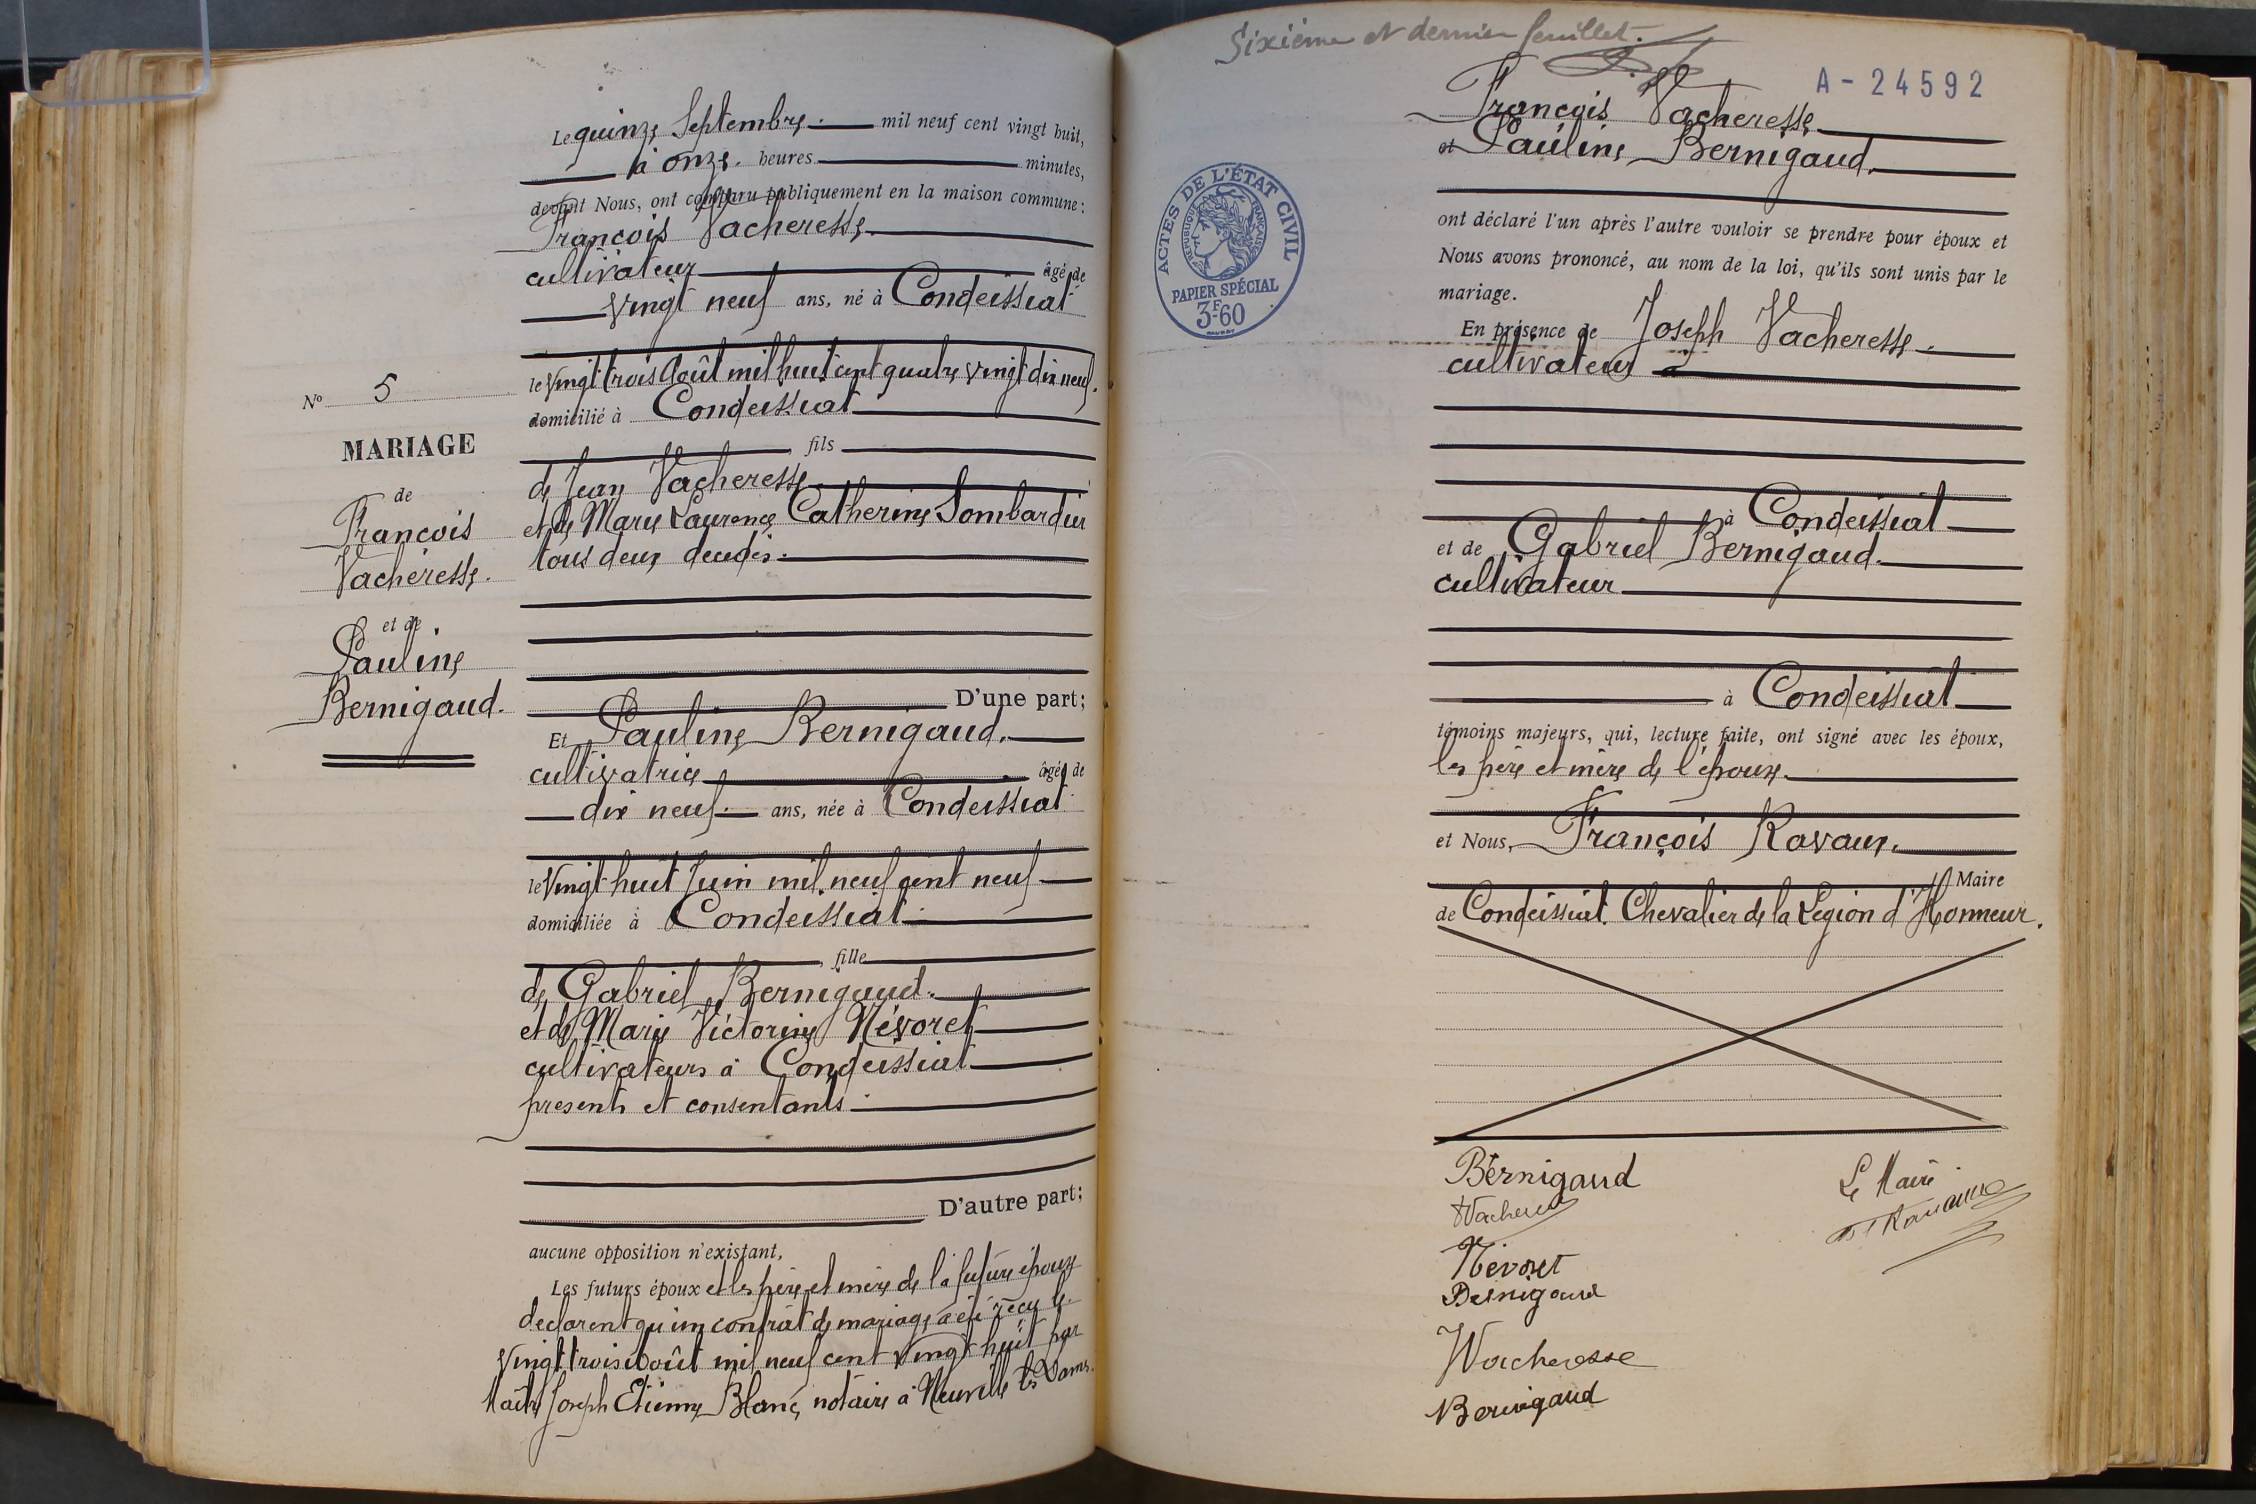 Le quinze Septembre. mil neuf cent vingt huit,
à onze. heures minutes,
devant Nous, ont comparu publiquement en la maison commune:
François Vacheresse.
cultivateur âgé de
vingt neuf ans, né à Condeissiat
le vingt trois Août mil huit cent quatre vingt dix neuf.
domicilié à Condeissiat
fils
de Jean Vacheresse
et de Marie Laurence Catherine Sombardier
tous deux décédés.
D'une part;
Nº 5
MARIAGE
de
François
Vacheresse.
et de
Pauline
Bernigaud.
Et Pauline Bernigaud.
cultivatrice âgée de
dix neuf ans, née à Condeissiat
le vingt huit Juin mil neuf cent neuf
domiciliée à Condeissiat
fille
de Gabriel Bernigaud.
et de Marie Victorine Névoret
cultivateurs à Condeissiat
présents et consentants.
D'autre part;
aucune opposition n'existant,
Les futurs époux et les père et mère de la future épouse
déclarent qu'un contrat de mariage a été reçu le
vingt trois Août mil neuf cent vingt huit par
Maître Joseph Etienne Blanc, notaire à Neuville les Dames.
Sixième et dernier feuillet.
A-24592
ACTES DE L'ÉTAT CIVIL
RÉPUBLIQUE FRANÇAISE
PAPIER SPÉCIAL
3F60
François Vacheresse
et Pauline Bernigaud.
ont déclaré l'un après l'autre vouloir se prendre pour époux et
Nous avons prononcé, au nom de la loi, qu'ils sont unis par le
mariage.
En présence de Joseph Vacheresse.
cultivateur
à Condeissiat
et de Gabriel Bernigaud.
cultivateur
à Condeissiat
témoins majeurs, qui, lecture faite, ont signé avec les époux,
les père et mère de l'épouse
et Nous, François Ravaux.
Maire
de Condeissiat. Chevalier de la Légion d'Honneur.
Bernigaud
Vacheresse
Névoret
Bernigaud
Vacheresse
Bernigaud
Le Maire